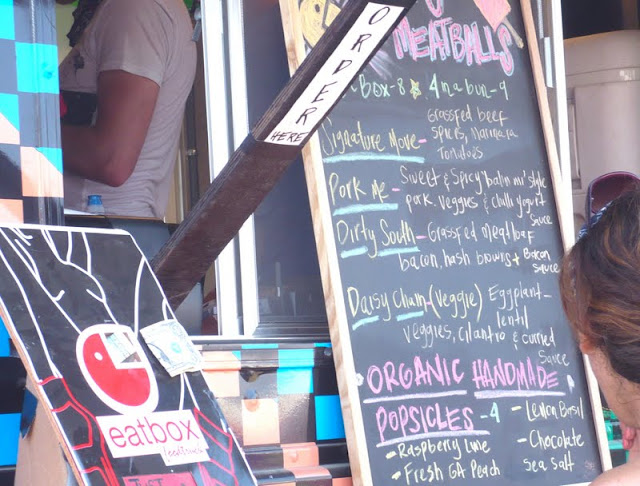 ORDER
HERE
MEATBALLS
Box-8 4 in a bun-9
Signature Move- Grassfed beef
spices, Marinara
Tomatoes
Pork Me- Sweet & Spicy bahn mi' style
pork. Veggies & chili yogurt
sauce
Dirty South- Grassfed Meatloaf
bacon, hash browns + Bacon
sauce
Daisy Chain-(Veggie) Eggplant-
lentil
veggies, cilantro & curried
Sauce
ORGANIC HANDMADE
POPSICLES -4
- Raspberry Lime
- Fresh GA Peach
- Lemon Basil
- Chocolate
Sea Salt
eatbox